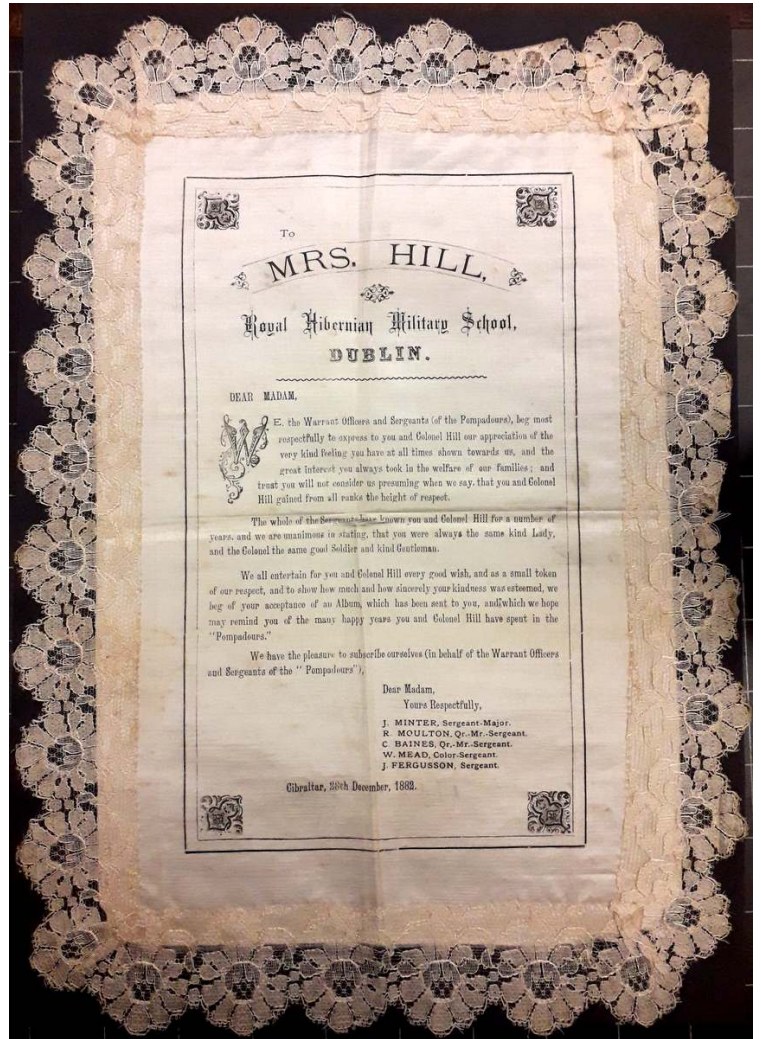 To
MRS. HILL,
Royal Hibernian Military School,
DUBLIN.
DEAR MADAM,
WE, the Warrant Officers and Sergeants (of the Pompadours), beg most
respectfully to express to you and Colonel Hill our appreciation of the
very kind feeling you have at all times shown towards us, and the
great interest you always took in the welfare of our families; and
trust you will not consider us presuming when we say, that you and Colonel
Hill gained from all ranks the height of respect.
The whole of the Sergeants have known you and Colonel Hill for a number of
years, and we are unanimous in stating, that you were always the same kind Lady,
and the Colonel the same good Soldier and kind Gentleman.
We all entertain for you and Colonel Hill every good wish, and as a small token
of our respect, and to show how much and how sincerely your kindness was esteemed, we
beg of your acceptance of an Album, which has been sent to you, and which we hope
may remind you of the many happy years you and Colonel Hill have spent in the
"Pompadours."
We have the pleasure to subscribe ourselves (in behalf of the Warrant Officers
and Sergeants of the "Pompadours"),
Dear Madam,
Yours Respectfully,
J. MINTER, Sergeant-Major.
R. MOULTON, Qr.-Mr.-Sergeant.
C. BAINES, Qr.-Mr.-Sergeant.
W. MEAD, Color-Sergeant.
J. FERGUSSON, Sergeant.
Gibraltar, 28th December, 1882.